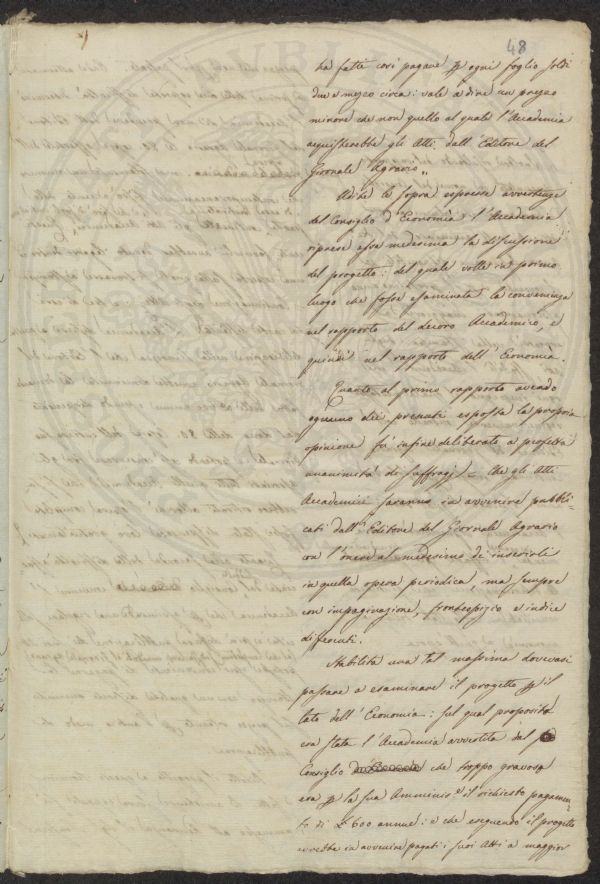 48
ha fatte così pagare ꝑ ogni foglio soldi
due e mezzo circa: vale a dire un prezzo
minore che non quello al quale l'Accademia
acquisterebbe gli Atti dall'Editore del
Giornale Agrario„
Udite le sopra espresse avvertenze
del Consiglio d'Economia l'Accademia
riprese essa medesima la discussione
del progetto: del quale volle in primo
luogo che fosse esaminata la convenienza
nel rapporto del decoro Accademico, e
quindi nel rapporto dell'Economia.
Quanto al primo rapporto avendo
ognuno dei presenti esposta la propria
opinione fù infine deliberato a perfetta
unanimità di suffragj = che gli Atti
Accademici saranno in avvenire pubbli-
cati dall'Editore del Giornale Agrario
con l'onere al medesimo di inserirli
in quella opera periodica, ma sempre
con impaginazione, frontespizio e indice
differenti.
Stabilita una tal massima dovevasi
passare a esaminare il progetto ꝑ il
lato dell'Economia: sul qual proposito
era stata l'Accademia avvertita dal
Consiglio che troppo gravosa
era ꝑ la sua Amminis.e il richiesto pagamen-
to di £ 600 annue: e che eseguendo il progetto
avrebbe in avvenire pagati i suoi Atti a maggior